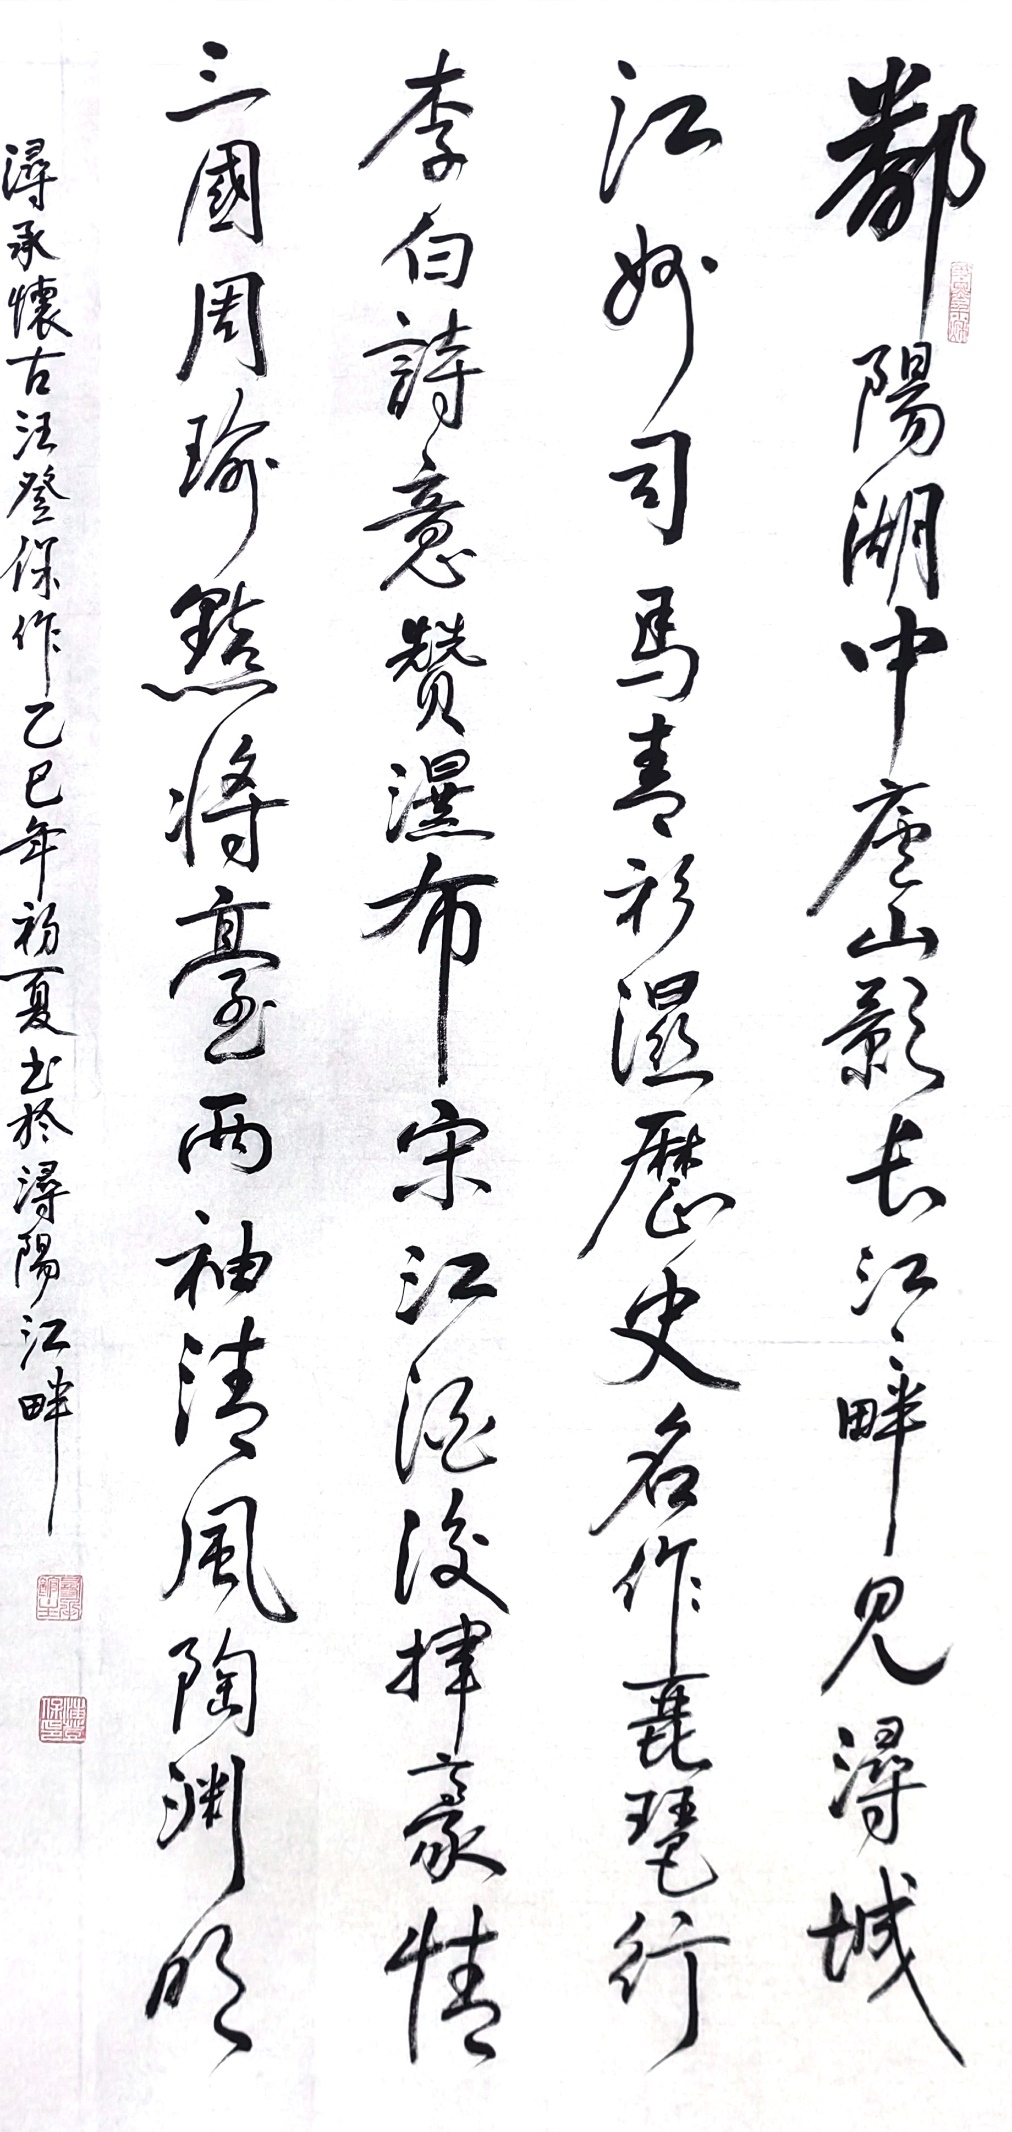 鄱陽湖中廬山影長江江畔見潯城
江州司馬青衫濕歷史名作琵琶行
李白詩意贊瀑布宋江酒後揮豪情
三國周瑜點將臺兩袖清風陶渊明
潯承懷古汪登保作乙巳年初夏书於潯陽江畔